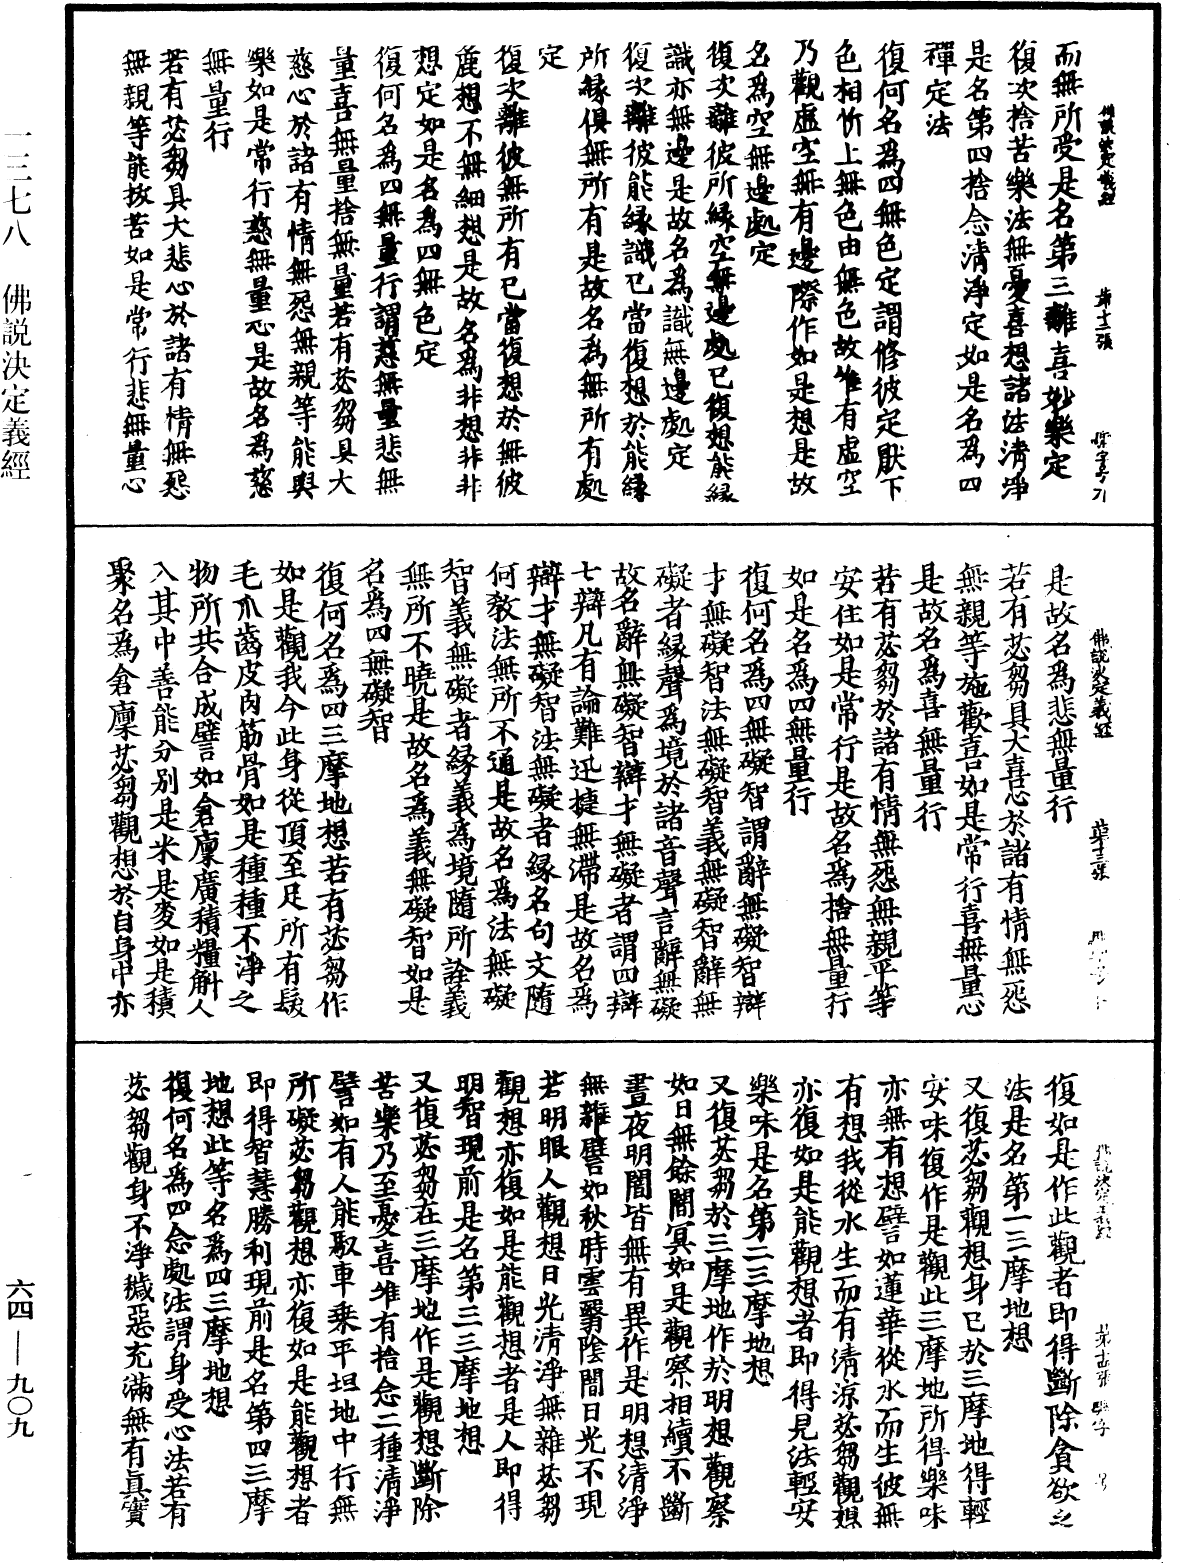 一三七八　佛説決定義經
六四—九〇九
而無所受是名第三離喜妙樂定
復次捨苦樂法無憂喜想諸法清淨
是名第四捨念清淨定如是名為四
禪定法
復何名為四無色定謂修彼定厭下
色相忻上無色由無色故唯有虛空
乃觀虛空無有邊際作如是想是故
名為空無邊處定
復次離彼所緣空無邊處已復想能緣
識亦無邊是故名為識無邊處定
復次離彼能緣識已當復想於能緣
所緣俱無所有是故名為無所有處
定
復次離彼無所有已當復想於無彼
麁想不無細想是故名為非想非非
想定如是名為四無色定
復何名為四無量行謂慈無量悲無
量喜無量捨無量若有苾芻具大
慈心於諸有情無怨無親等能與
樂如是常行慈無量心是故名為慈
無量行
若有苾芻具大悲心於諸有情無怨
無親等能拔苦如是常行悲無量心
佛說決定義經
是故名為悲無量行
若有苾芻具大喜心於諸有情無怨
無親等施歡喜如是常行喜無量心
是故名為喜無量行
若有苾芻於諸有情無怨無親平等
安住如是常行是故名為捨無量行
如是名為四無量行
復何名為四無礙智謂辭無礙智辯
才無礙智法無礙智義無礙智辭無
礙者緣聲為境於諸音聲言辭無礙
故名辭無礙智辯才無礙者謂四辯
七辯凡有論難迅捷無滯是故名為
辯才無礙智法無礙者緣名句文隨
何教法無所不通是故名為法無礙
智義無礙者緣義為境隨所詮義
無所不曉是故名為義無礙智如是
名為四無礙智
復何名為四三摩地想若有苾芻作
如是觀我今此身從頂至足所有髮
毛爪齒皮肉筋骨如是種種不淨之
物所共合成譬如倉廩廣積糧斛人
入其中善能分別是米是麥如是積
聚名為倉廩苾芻觀想於自身中亦
復如是作此觀者即得斷除貪欲之
法是名第一三摩地想
又復苾芻觀想身已於三摩地得輕
安味復作是觀此三摩地所得樂味
亦無有想譬如蓮華從水而生彼無
有想我從水生而有清涼苾芻觀想
亦復如是能觀想者即得見法輕安
樂味是名第二三摩地想
又復苾芻於三摩地作於明想觀察
如日無餘闇冥如是觀察相續不斷
晝夜明闇皆無有異作是明想清淨
無雜譬如秋時雲翳陰闇日光不現
若明眼人觀想日光清淨無雜苾芻
觀想亦復如是能觀想者是人即得
明智現前是名第三三摩地想
又復苾芻在三摩地作是觀想斷除
苦樂乃至憂喜唯有捨念二種清淨
譬如有人能馭車乘平坦地中行無
所礙苾芻觀想亦復如是能觀想者
即得智慧勝利現前是名第四三摩
地想此等名為四三摩地想
復何名為四念處法謂身受心法若有
苾芻觀身不淨穢惡充滿無有真實